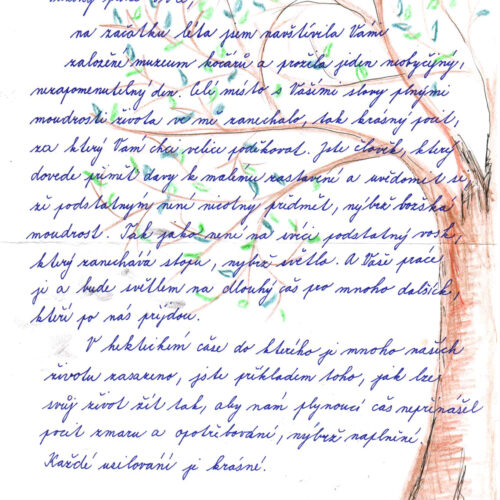 na začátku léta jsem navštívila Vámi
založené muzeum kočárů a prožila jeden neobyčejný,
nezapomenutelný den. Celé místo s Vašimi slovy plnými
moudrosti života ve mě zanechalo, tak krásný pocit,
za který Vám chci velice poděkovat. Jste člověk, který
dovede přimět davy k malému zastavení a uvědomit si
že podstatným není nicotný předmět, nýbrž božská
moudrost. Tak jako není na svíci podstatný vosk,
který zanechává stopu, nýbrž světlo. A Vaše práce
je a bude světlem na dlouhý čas pro mnoho dalších,
kteří po nás přijdou.
V hektickém čase do kterého je mnoho našich
životů zasazeno, jste příkladem toho, jak lze
svůj život žít tak, aby nám plynoucí čas nepřinášel
pocit zmaru a opotřebování, nýbrž naplnění.
Každé usilování je krásné.